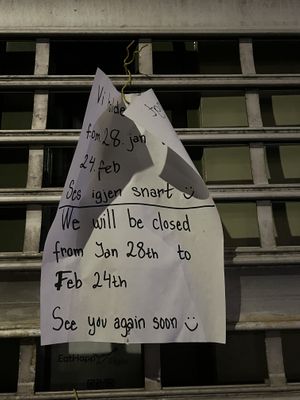 Vi
fom 28. jan
24. feb
Ses igjen snart
We will be closed
from Jan 28th to
Feb 24th
See you again soon
EatHappy